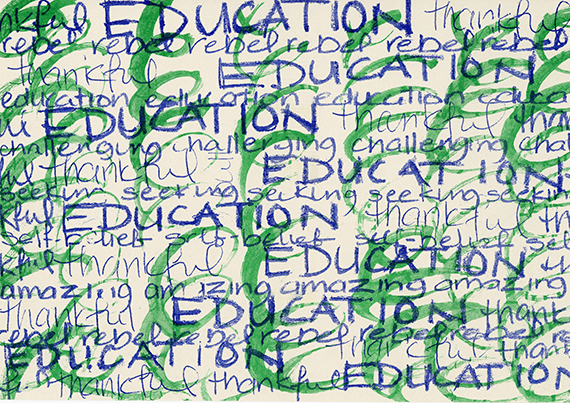 thankful EDUCATION thankful
rebel rebel rebel rebel rebel rebel
thankful EDUCATION
education education education education
EDUCATION thankful
challenging challenging challenging
thankful EDUCATION
seeking seeking seeking seeking seeking
EDUCATION thankful
self-belief self-belief self-belief self
thankful EDUCATION
amazing amazing amazing amazing
thankful EDUCATION thank
rebel rebel rebel rebel rebel rebel rebel
EDUCATION thankful
thankful thankful EDUCATION